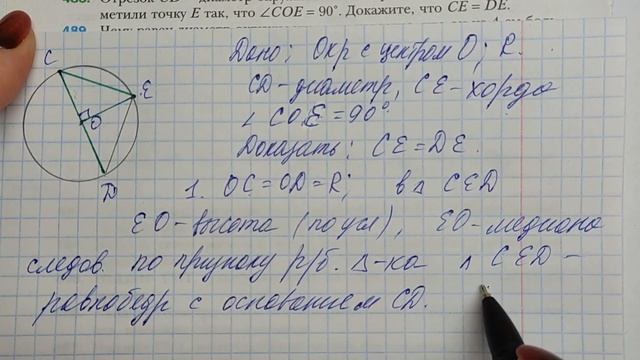 метили точку E так, что ∠COE = 90°. Докажите, что CE = DE.
Дано: Окр с центром O; R.
CD-диаметр, CE-хорда
∠ COE = 90°
Доказать: CE = DE.
1. OC = OD = R; в △ CED
EO-высота (по усл), EO-медиана
следов. по признаку р/б. △-ка △ CED -
равнобедр с основанием CD.
C
E
O
D